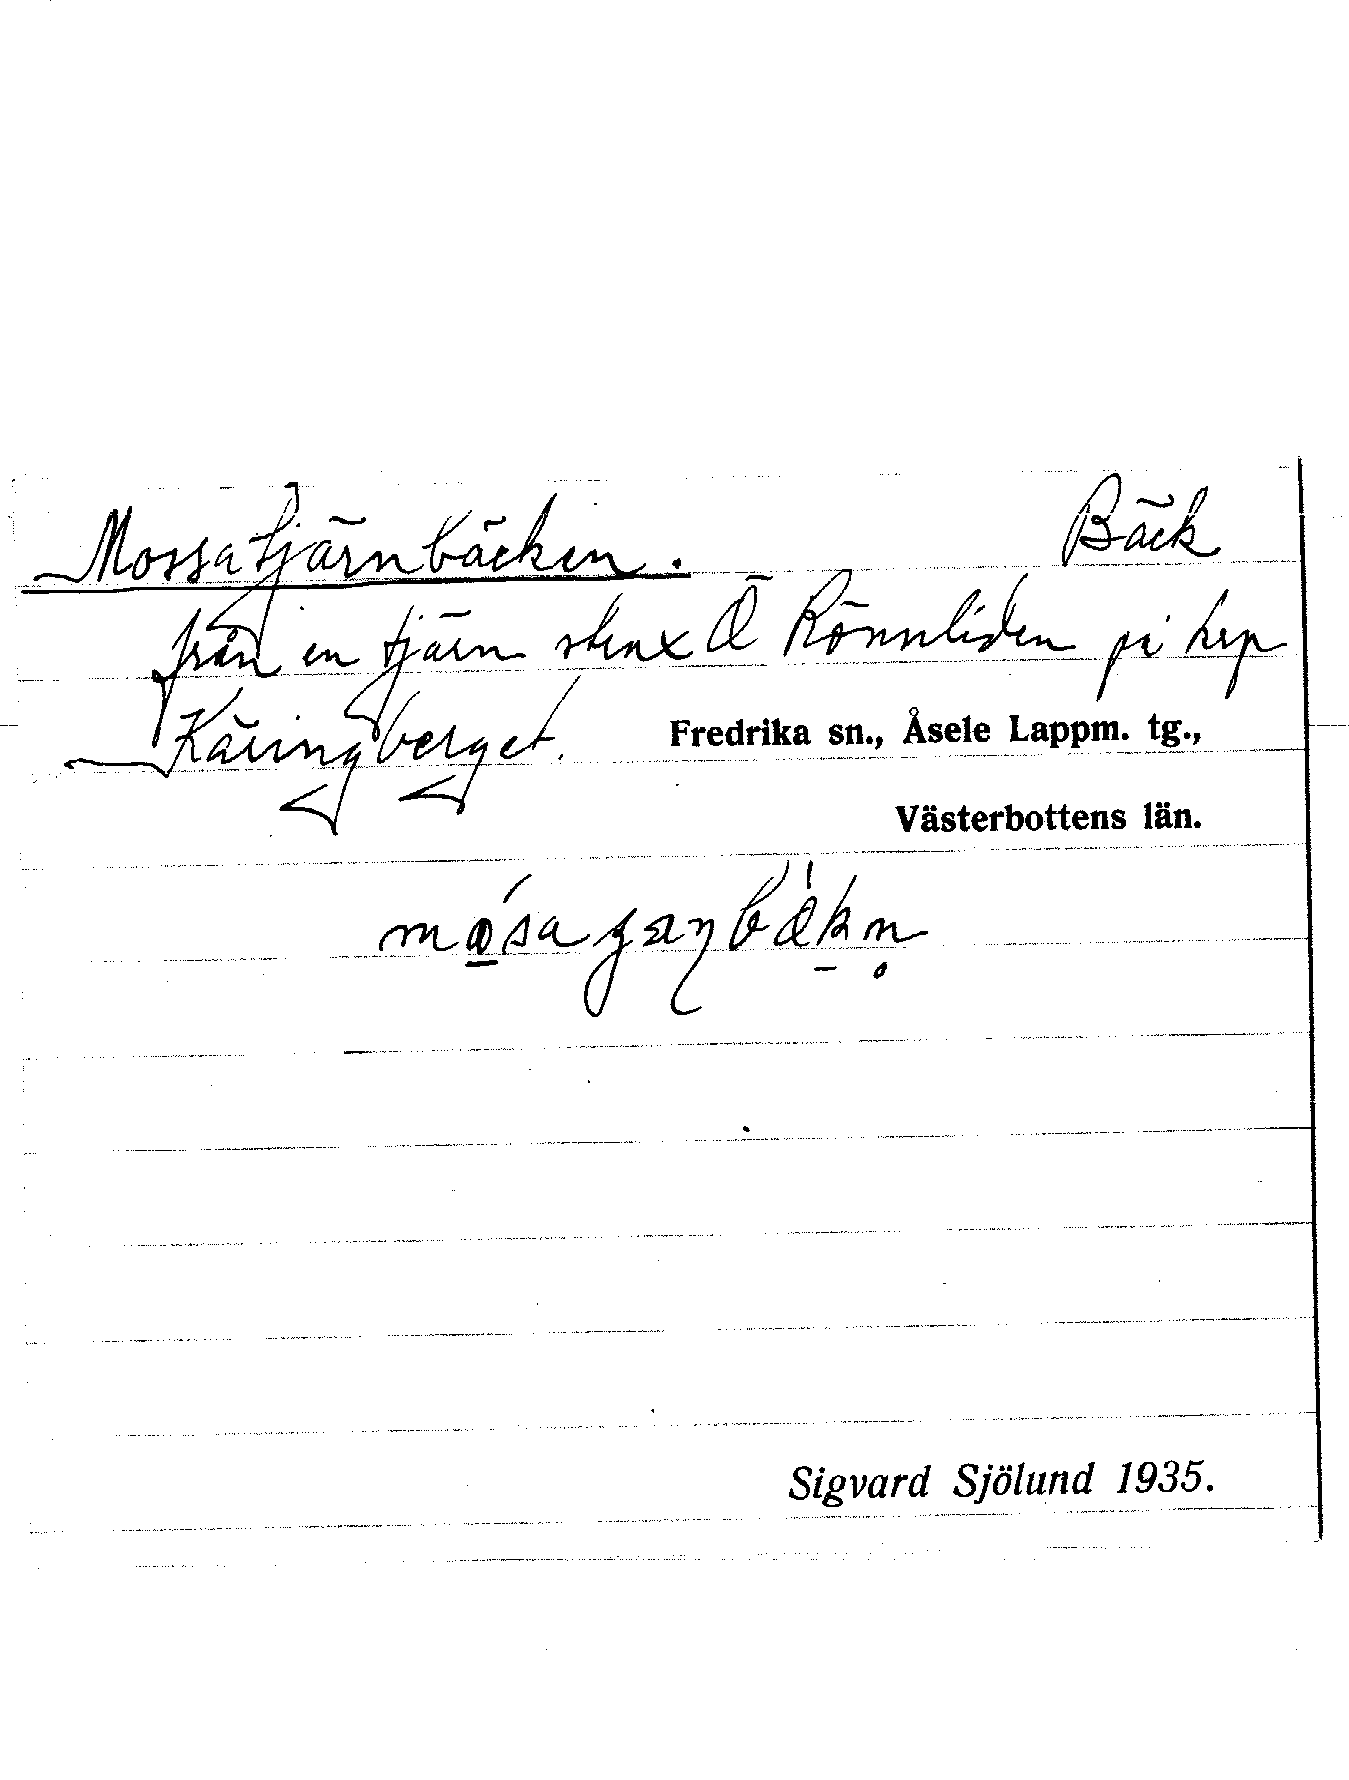 Mossatjärnbäcken. Bäck
från en tjärn strax Ö Rönnliden på hsp
Käringberget. Fredrika sn., Åsele Lappm. tg.,
Västerbottens län.
Sigvard Sjölund 1935.